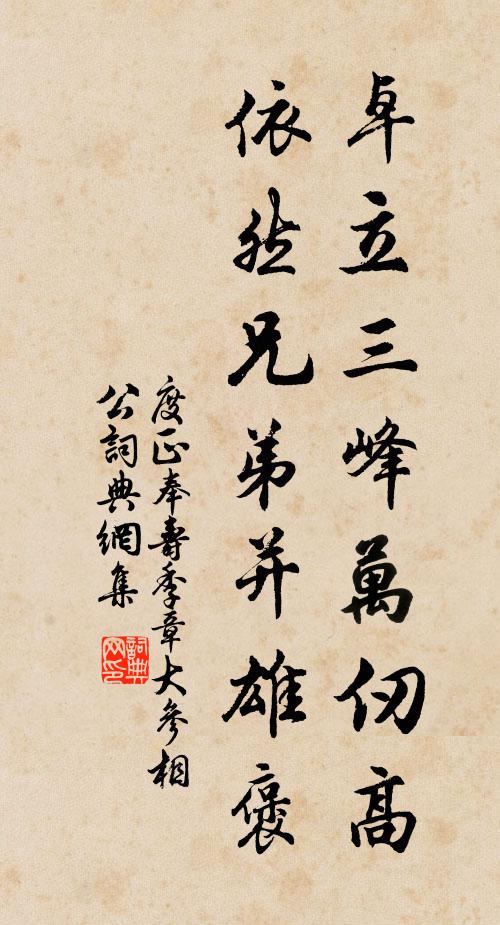 卓立三峰萬仞高
依然兄弟并雄褒
度正奉壽季章大參相
公詞典網集
詞典
网印